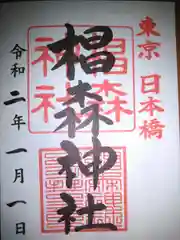 東京 日本橋
椙森神社
椙森
神社
令和二年一月一日